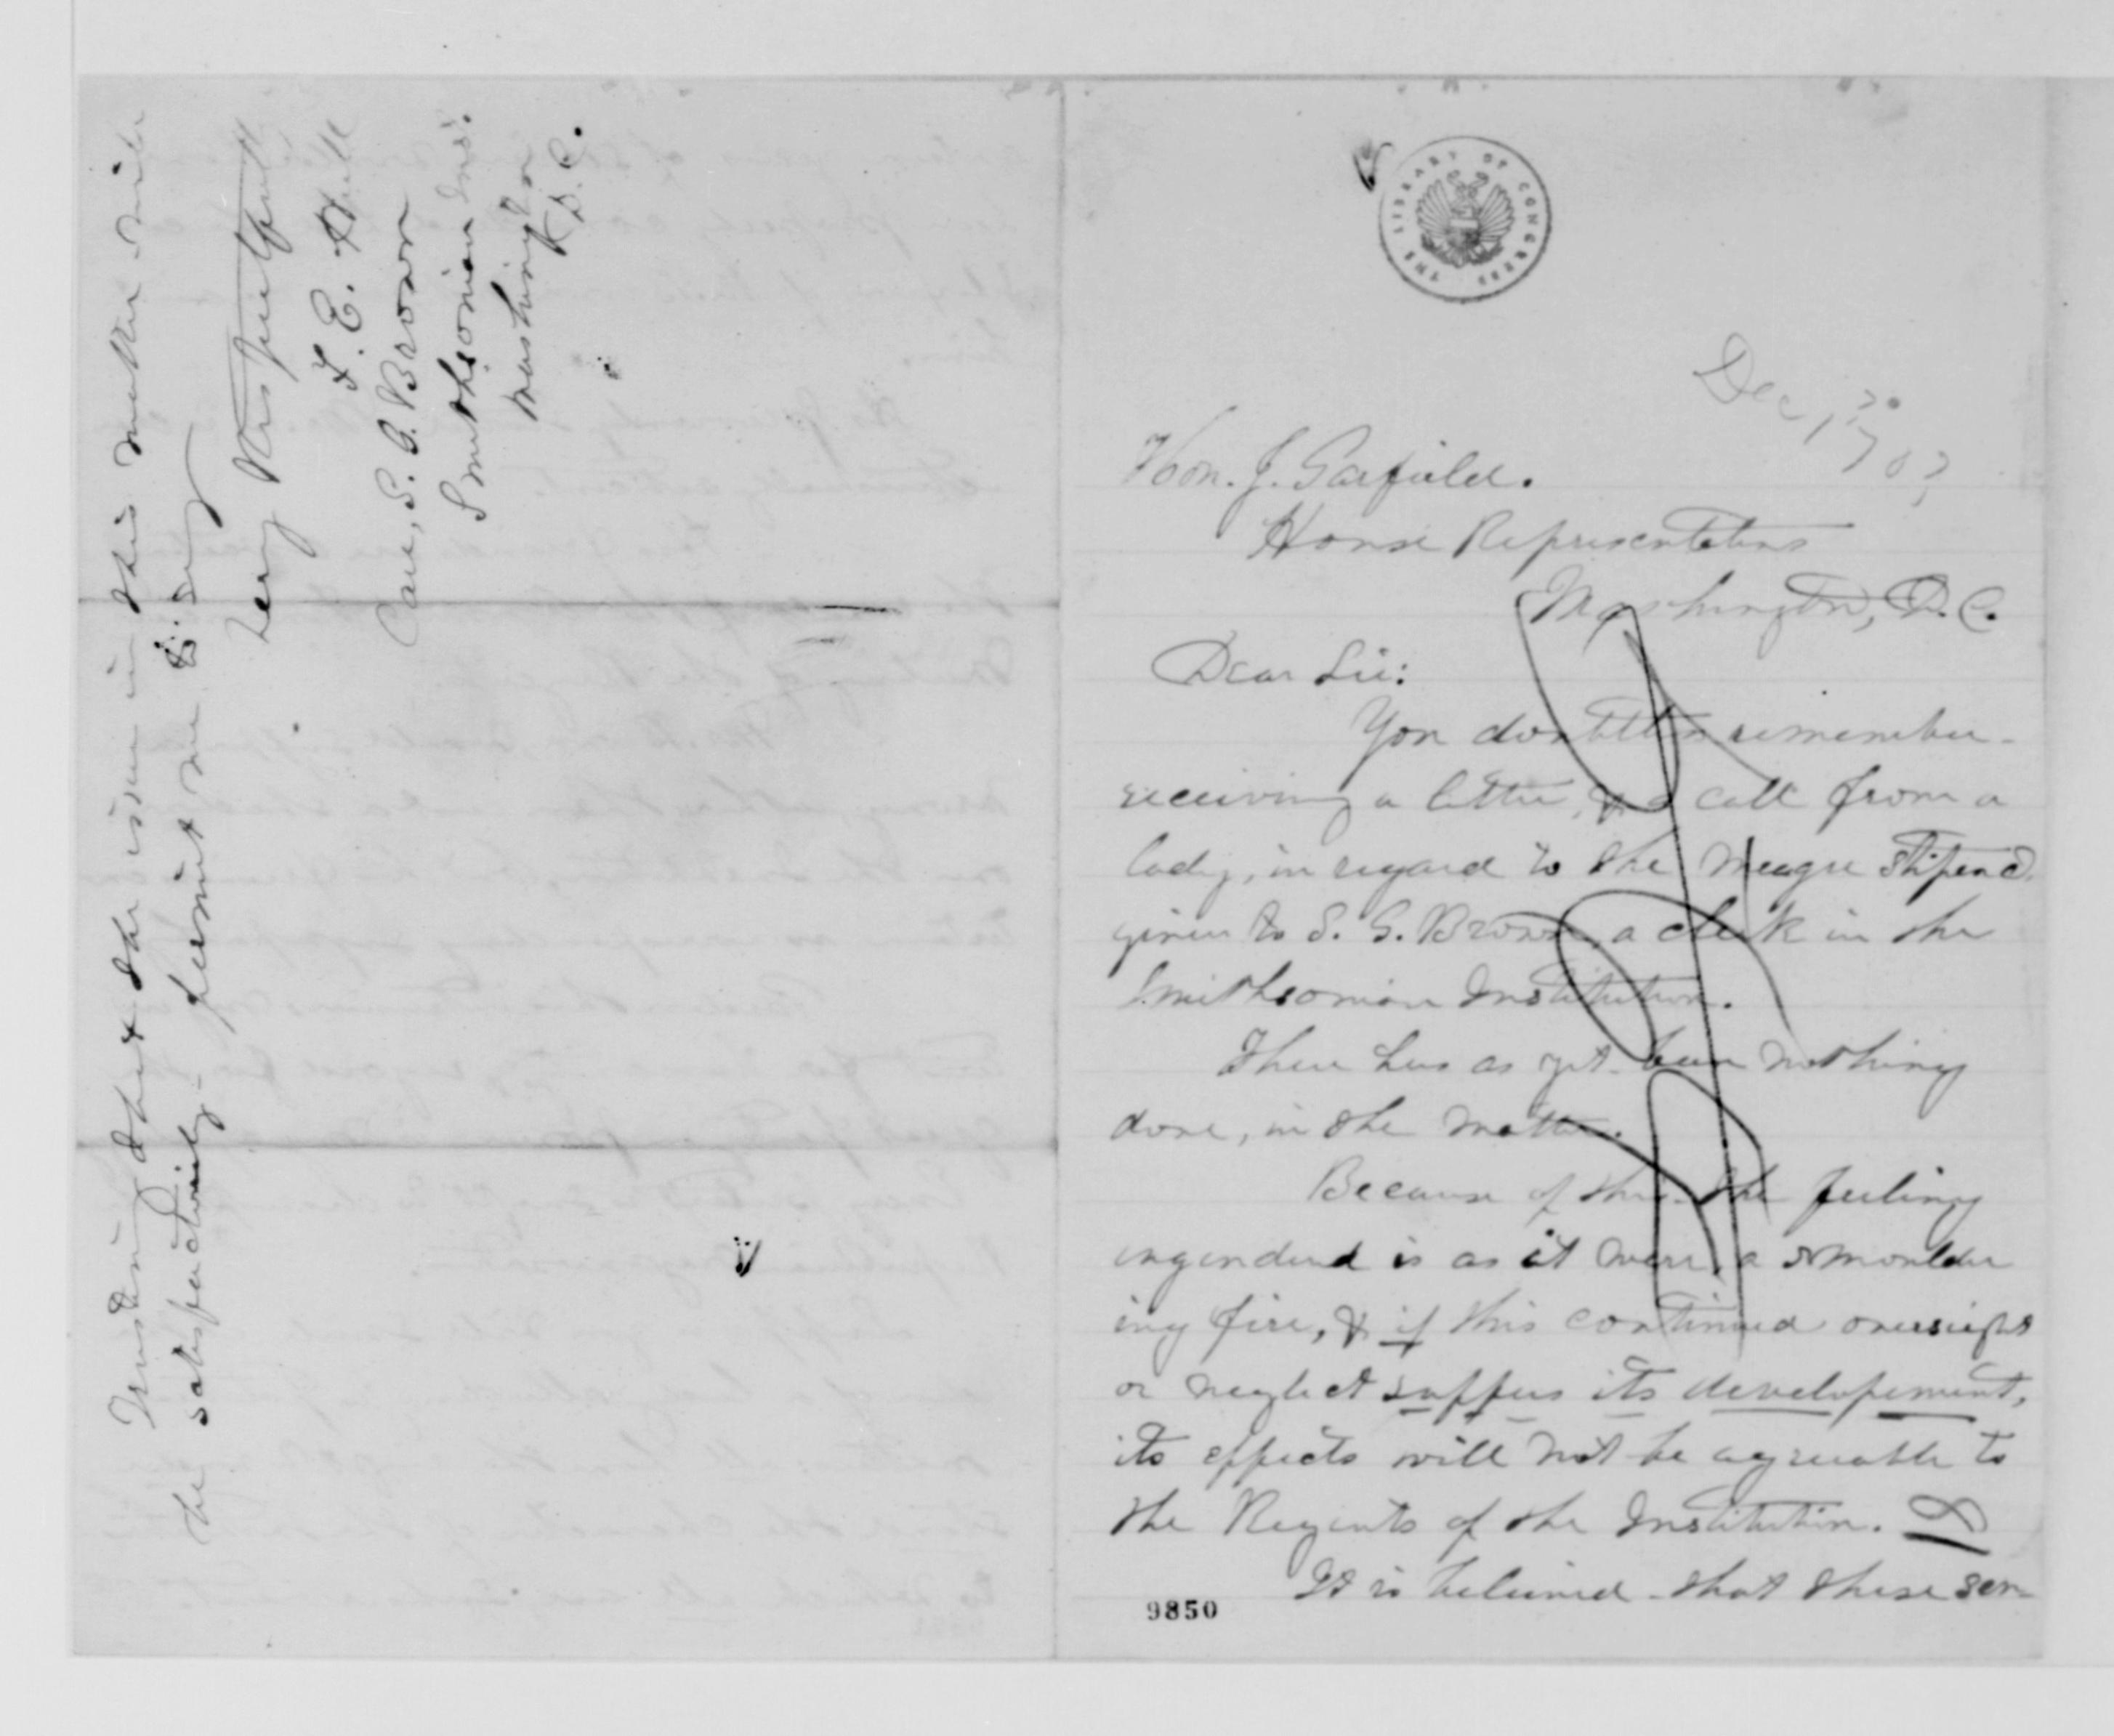 Dec, 30
70?
THE LIBRARY OF CONGRESS
Hon. J. Garfield.
House Representatives
Washington, D.C.
Dear Sir:
You doubtless remember
receiving a letter, & a call from a
lady, in regard to the meagre stipend
given to S. G. Brown, a clerk in the
Smithsonian Institution.
There has as yet been nothing
done, in the matter.
Because of this the feeling
engendered is as it were, a smoulder
ing fire, & if this continued oversight
or neglect suffers its developement,
its effects will not be agreeable to
the Regents of the Institution.
It is believed that these ser-
9850
Trusting that the issue in this matter will
be satisfactory - permit me to sign
Very Respectfully
F. E. Hull
Care, S. G. Brown
Smithsonian Inst.
Washington
D.C.